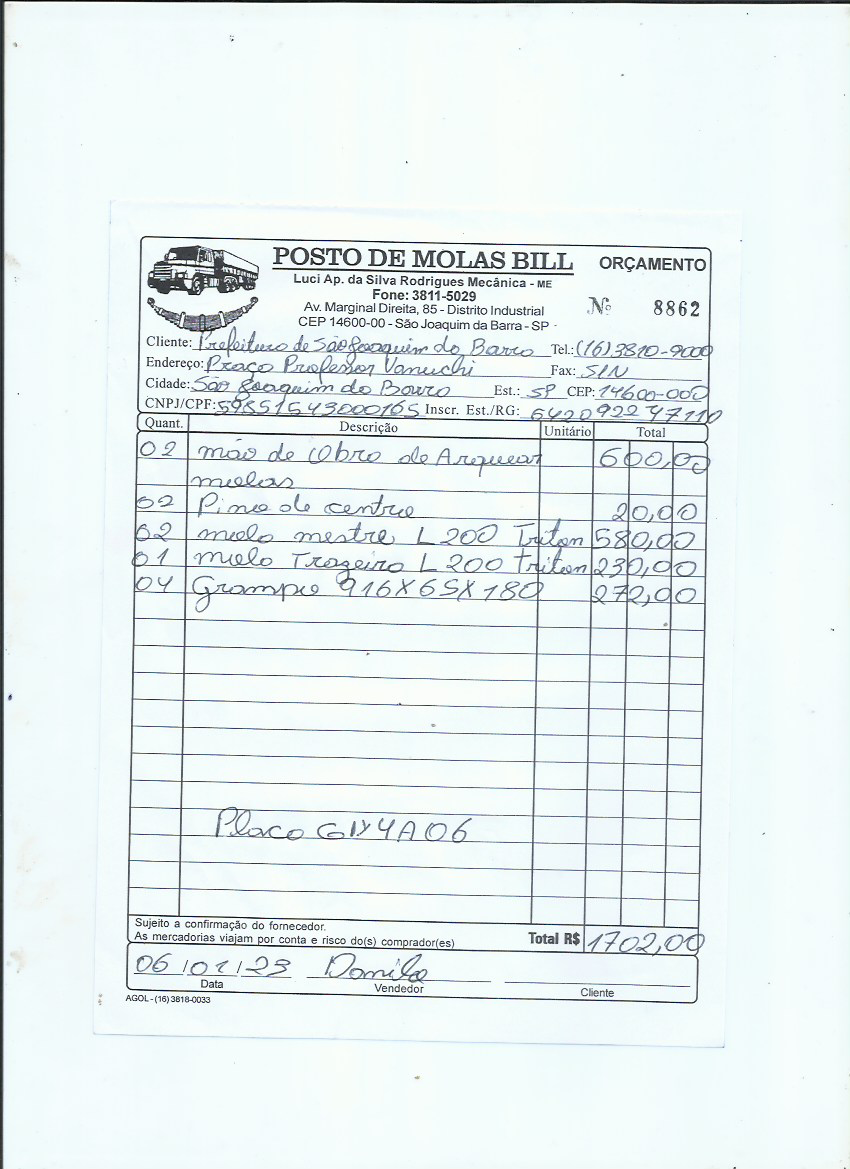 POSTO DE MOLAS BILL
ORÇAMENTO
Luci Ap. da Silva Rodrigues Mecânica - ME
Fone: 3811-5029
Av. Marginal Direita, 85 - Distrito Industrial
CEP 14600-00 - São Joaquim da Barra - SP
Nº 8862
Cliente: Prefeitura de São Joaquim da Barra Tel.: (16) 3810-9000
Endereço: Praça Professor Vanuchi Fax: S/N
Cidade: São Joaquim da Barra Est.: SP CEP: 14600-000
CNPJ/CPF: 59851543000165 Inscr. Est./RG: 642092247110
Quant. Descrição Unitário Total
02 mão de Obra de Arquear 600,00
molas
02 Pino de centro 20,00
02 mola mestre L 200 Triton 580,00
01 mola Trazeira L 200 triton 230,00
04 Grampo 916X65X180 272,00
Placa 4A06
Sujeito a confirmação do fornecedor.
As mercadorias viajam por conta e risco do(s) comprador(es)
Total R$ 1702,00
06/01/23 Danilo
Data Vendedor Cliente
AGOL - (16) 3818-0033